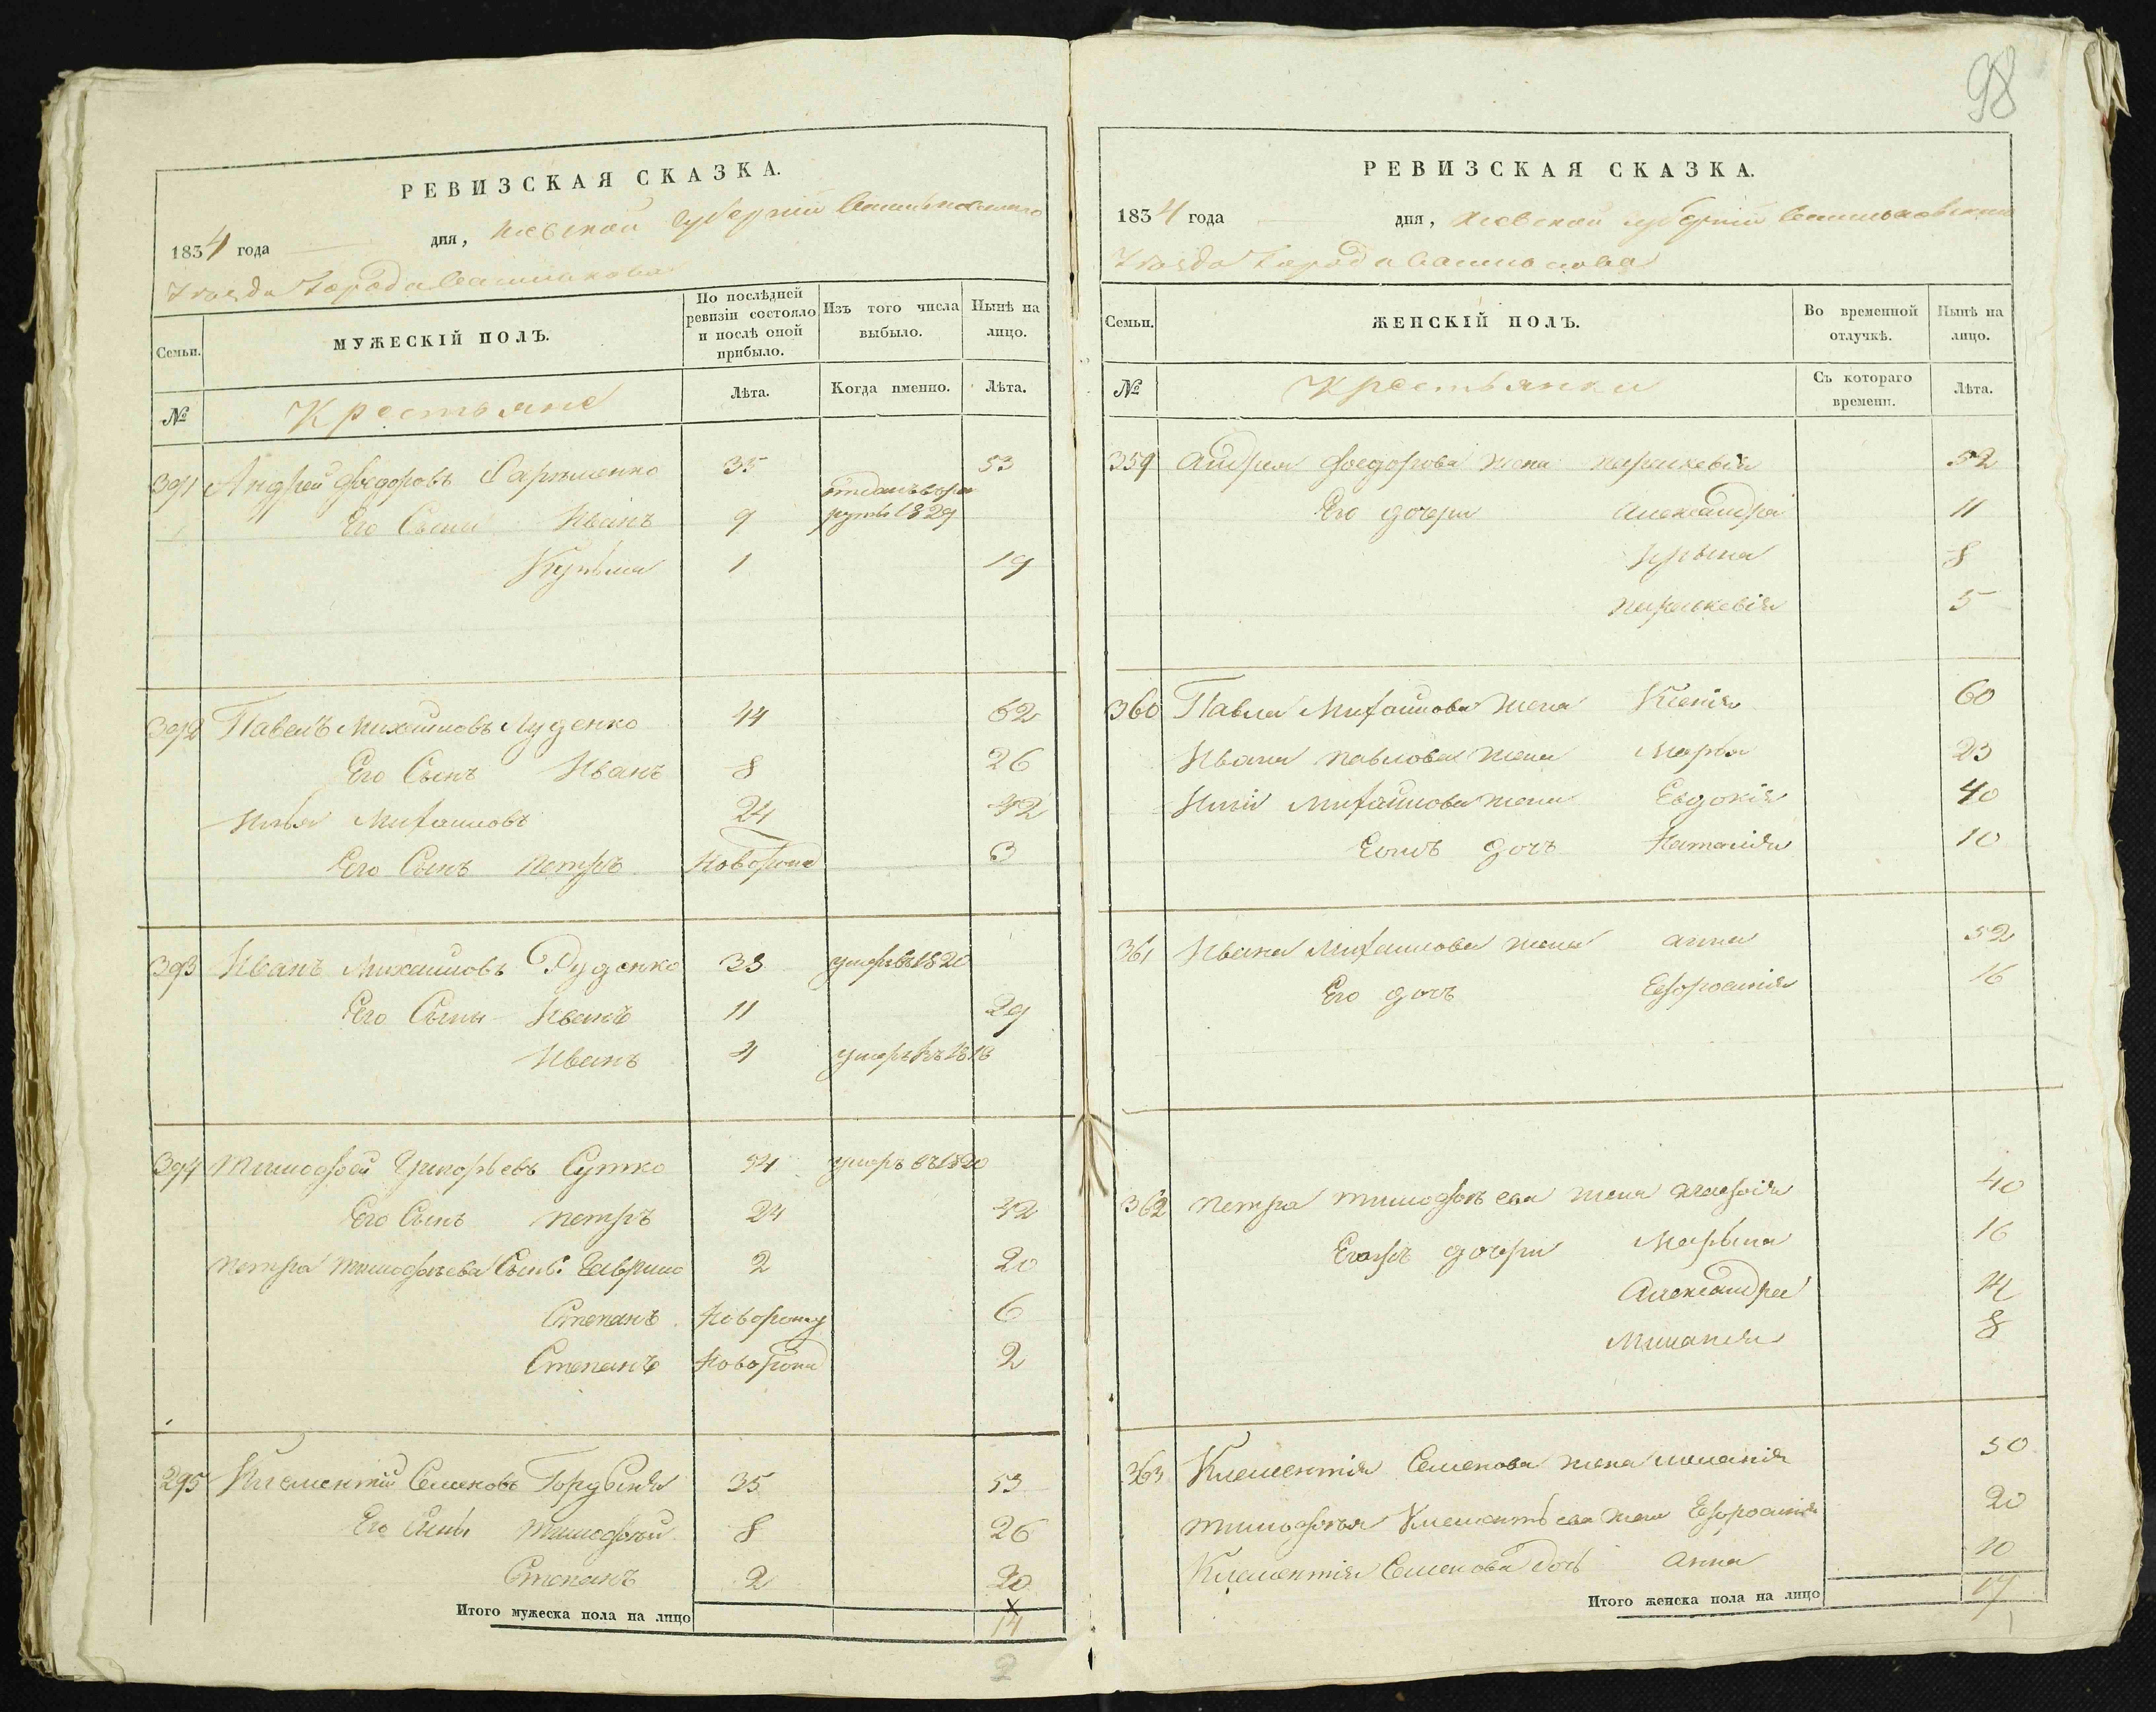 98
РЕВИЗСКАЯ СКАЗКА.
1834 года дня, Киевской Губерніи Васильковскаго
Уѣзда Города Василькова
Семьи.
МУЖЕСКІЙ ПОЛЪ.
По послѣдней ревизіи состояло и послѣ оной прибыло.
Изъ того числа выбыло.
Нынѣ на лицо.
№
Крестьяне
Лѣта.
Когда именно.
Лѣта.
391 Андрей Федоровъ 35 53
Его Сыни Иванъ 9 отданъ в рекруты 1829
Кузьма 1 19
392 Павелъ Михайловъ Луценко 44 62
Его Сынъ Иванъ 8 26
Илья Михайловъ 24 42
Его Сынъ Петръ Новорожд 3
393 Иванъ Михайловъ Руденко 33 умеръ въ 1820
Его Сыны Иванъ 11 29
Иванъ 4 умеръ въ 1818
394 Тимофей Григорьевъ Сутко 54 умеръ въ 1820
Его Сынъ Петръ 24 42
Петра Тимофеева Сынъ: Гаврило 2 20
Степанъ Новорожд 6
Степанъ Новорожд 2
295 Климентій Семеновъ 35 53
Его Сыны Тимофей 8 26
Степанъ 2 20
Итого мужеска пола на лицо 14
2
РЕВИЗСКАЯ СКАЗКА.
1834 года дня, Киевской губерніи Васильковскаго
Уѣзда Города Василькова
Семьи.
ЖЕНСКІЙ ПОЛЪ.
Во временной отлучкѣ.
Нынѣ на лицо.
№
Крестьянки
Съ котораго времени.
Лѣта.
359 Андрея Федорова жена Параскевія 52
Его дочери Александра 11
Ирына 8
Параскевія 5
360 Павла Михайлова жена Ксенія 60
Ивана Павлова жена Марья 23
Иліи Михайлова жена Евдокія 40
дочъ Наталія 10
361 Ивана Михайлова жена Анна 52
Его дочъ Ефросинія 16
362 Петра Тимофеева жена 40
дочери Марына 16
Александра 14
Миланія 8
363 Климентія Семенова жена Меланія 50
Тимофея Климентьева жена Ефросинія 20
Климентія Семенова дочь Анна 10
Итого женска пола на лицо 17